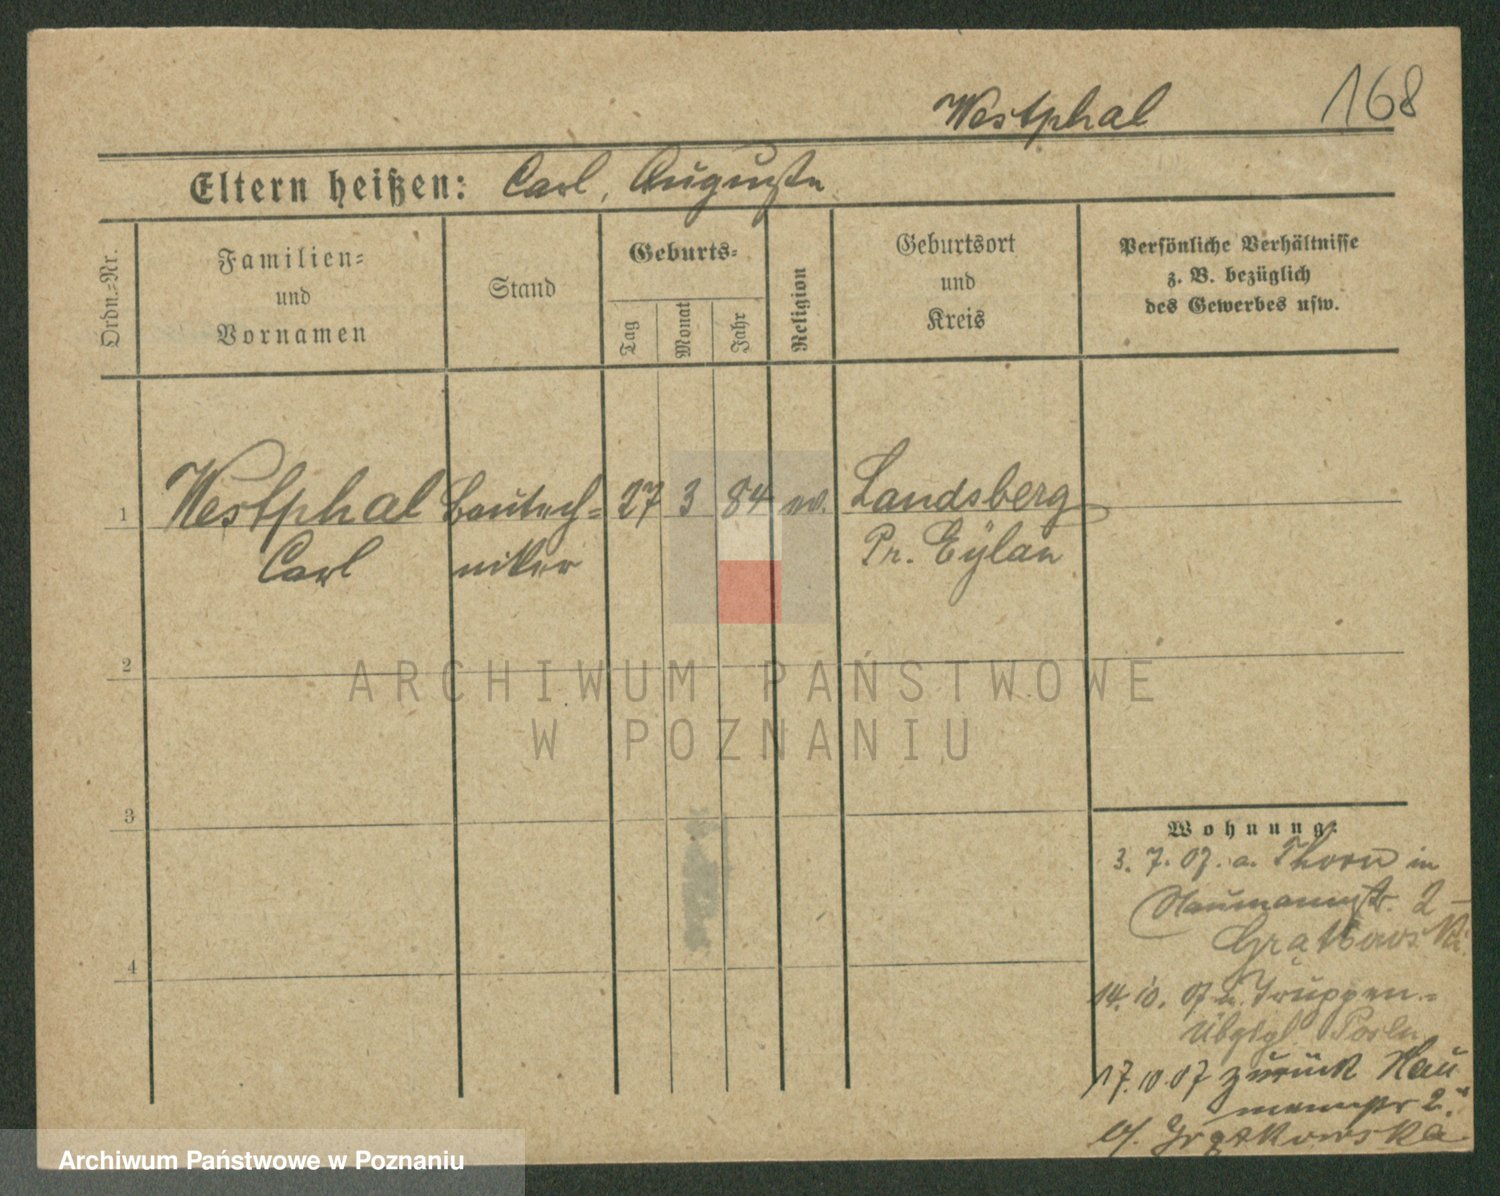 168
Westphal
Eltern heißen: Carl, Auguste
Ordn.-Nr.
Familien-
und
Vornamen
Stand
Geburts-
Tag
Monat
Jahr
Religion
Geburtsort
und
Kreis
Persönliche Verhältnisse
z. B. bezüglich
des Gewerbes usw.
1 Westphal Bautech- 27 3 84 ev. Landsberg
Carl niker Pr. Eylau
2
3
4
Wohnung:
3. 7. 07. a. Thorn in
Naumannstr. 2
14. 10. 07 z. Truppen-
Posen
17. 10. 07 zurück Nau
mannstr 2.
b/. Grątkowska
ARCHIWUM PAŃSTWOWE
W POZNANIU
Archiwum Państwowe w Poznaniu